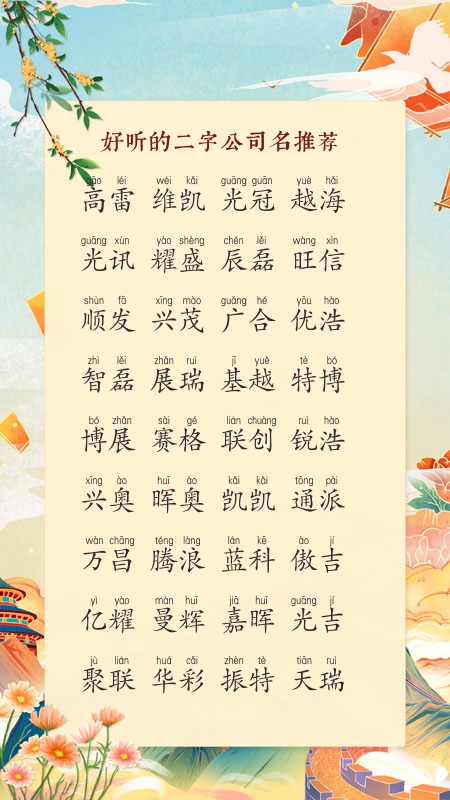 好听的二字公司名推荐
gāo léi wéi kǎi guāng guān yuè hǎi
高雷 维凯 光冠 越海
guāng xùn yào shèng chén lěi wàng xìn
光讯 耀盛 辰磊 旺信
shùn fā xīng mào guǎng hé yōu hào
顺发 兴茂 广合 优浩
zhì lěi zhǎn ruì jī yuè tè bó
智磊 展瑞 基越 特博
bó zhǎn sài gé lián chuàng ruì hào
博展 赛格 联创 锐浩
xīng ào huī ào kǎi kǎi tōng pài
兴奥 晖奥 凯凯 通派
wàn chāng téng làng lán kē ào jí
万昌 腾浪 蓝科 傲吉
yì yào màn huī jiā huī guāng jí
亿耀 曼辉 嘉晖 光吉
jù lián huá cǎi zhèn tè tiān ruì
聚联 华彩 振特 天瑞